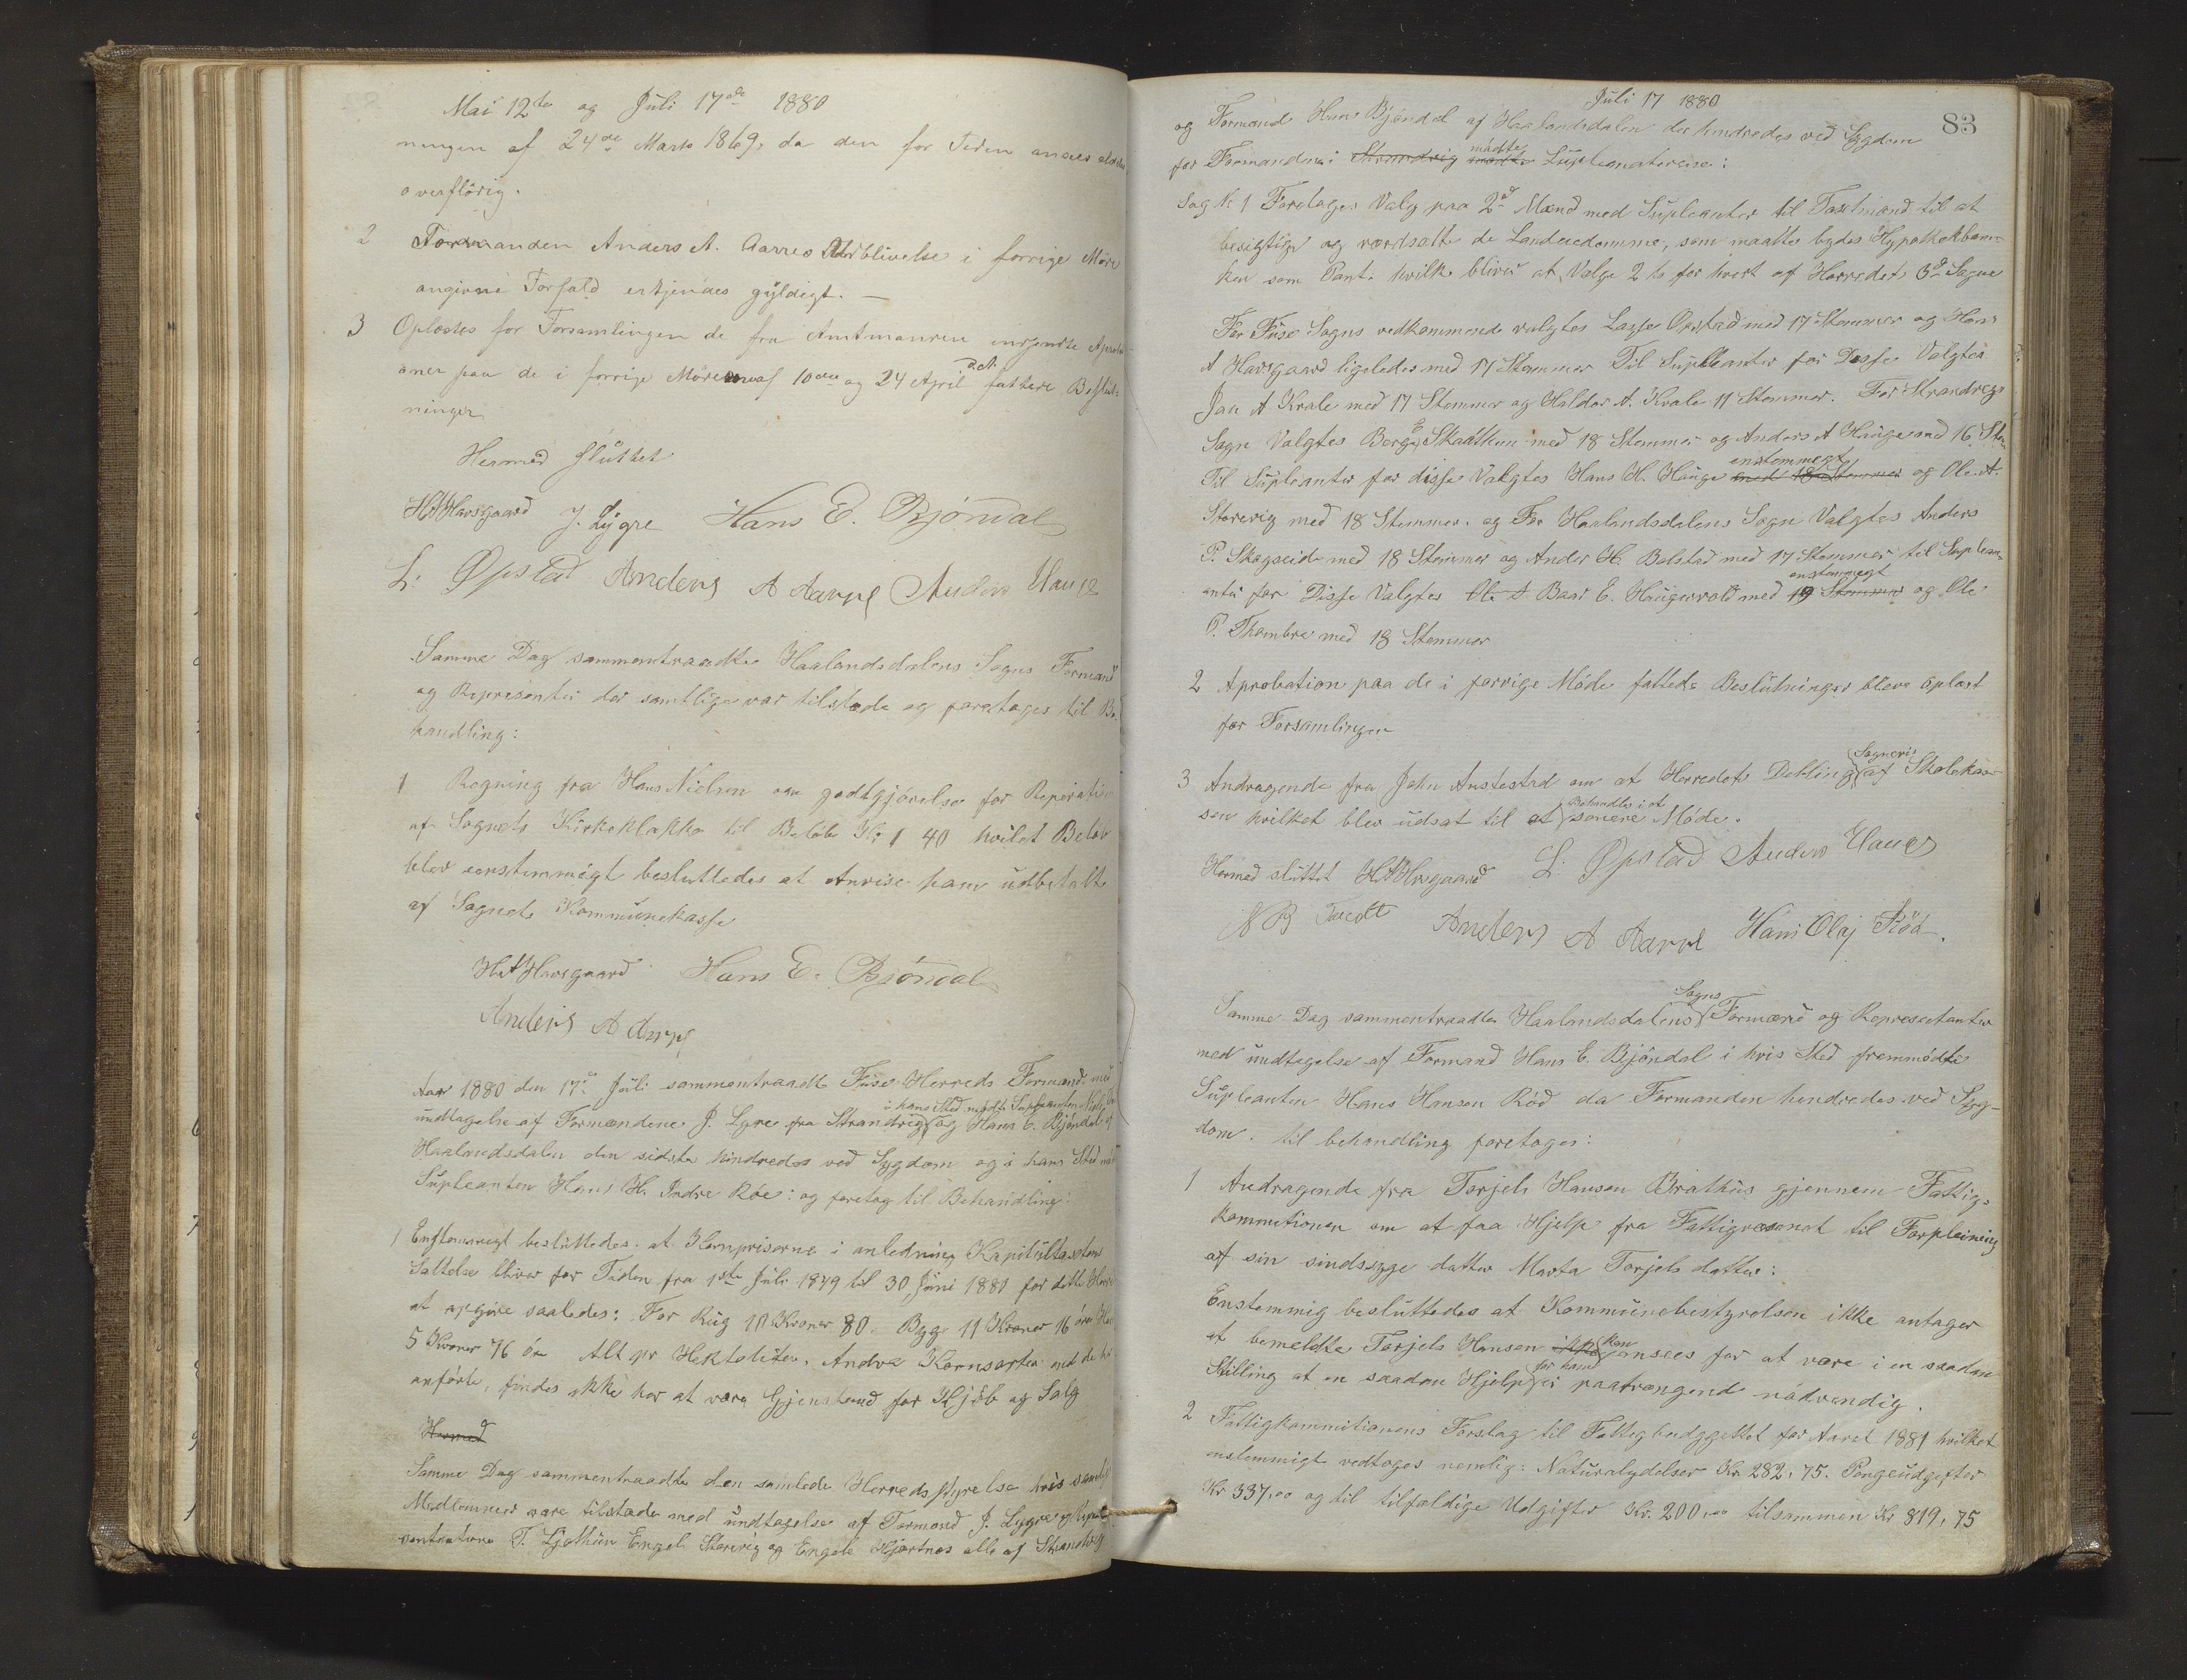 Mai 12te og Juli 17de 1880
ningen af 24de Marts 1869, da den for Tiden ansees
overflörig.
2 Formanden Anders A. Aarres Udeblivelse i forrige Möde
angivne Forfald erkjendes gyldigt. —
3 Oplæstes for Forsamlingen de fra Amtmanden indsendte
oner paa de i forrige Möde af 10de og 24 April d.A. fattede Beslut-
ninger
Hermed sluttet
HAHavsgaard J. Lygre Hans E. Bjöndal
L. Opstad Anders A Aarre Anders Hauge
Samme Dag sammentraadte Haalandsdalens Sogns Formænd
og Represænter der samtlige var tilstæde og foretoges til Be-
handling:
1 Regning fra Hans Nielsen om godtgjörelse for Reperation
af Sognets Kirkeklokke til Beløb Kr 1 40 hvilet Beløb
blev eenstemmigt besluttedes at Anvise ham udbetalt
af Sognets Kommunekasse
HAHavsgaard Hans E. Bjöndal
Anders A Aarre
Aar 1880 den 17de Juli sammentraadt Fuse Herreds Formænd med
i hans Sted mödte Supleanten
undtagelse af Formændene J. Lygre fra Strandvig og Hans E. Bjöndal af
Haalandsdalen den sidste hindredes ved Sygdom og i hans Sted
Supleanten Hans H. Indre Röe: og foretog til Behandling:
1 Enstemmigt besluttedes at Kornpriserne i anledning Kapitultaxtens
Sættelse bliver for Tiden fra 1ste Juli 1879 til 30 Juni 1880 for dette
at opgive saaledes: For Rug 10 Kroner 80. Byg 11 Kroner 16 öre
5 Kroner 76 öre Alt pr Hektoliter. Andre Kornsorter end de her
anförte, findes ikke her at være Gjenstand for Kjöb og Salg
Hermed
Samme Dag sammentraadte den samlede Herredsstyrelse hvis samtlige
Medlemmer vare tilstæde med undtagelse af Formand J. Lygre og
sentanterne T. Ljothun Engel Storevig og Engel Hjartnæs alle af Strandvig
Juli 17 1880
83
og Formand Hans Bjöndal af Haalandsdalen der hindredes ved Sygdom
for Formændene i Strandvig mødte mødte Supleanterene:
Sag No 1 Foretoges Valg paa 2de Mænd med Supleanter til Taxtmænd til at
besigtige og værdsætte de Landeiedomme, som maatte bydes Hypothekban-
ken som Pant. hvilke bliver at Vælge 2 to for hvert af Herredets 3de Sogne
For Fuse Sogns vedkommende valgtes Lasse Opstad med 17 Stemmer og Hans
A Havsgaard ligeledes med 17 Stemmer Til Supleanter for Disse Valgtes
Jan A Kvale med 17 Stemmer og Haldor A. Kvale 11 Stemmer. For Strandvigs
Sogn Valgtes Berge E Skaathun med 18 Stemmer og Anders A Hauge med 16 Stem
Til Supleanter for disse Valgtes Hans H. Hauge enstemmegt med 18 Stemmer og Ole A.
Storevig med 18 Stemmer. og For Haalandsdalens Sogn Valgtes Anders
P. Skogseide med 18 Stemmer og Anders H. Bolstad med 17 Stemmer til Suplean-
enter for Disse Valgtes Ole A Baar E. Haugervold med enstemmegt 19 Stemmer og Ole
P. Thombre med 18 Stemmer
2 Aprobation paa de i forrige Möde fattede Beslutninger blev oplæst
for Forsamlingen
3 Andragende fra John Austestad om at Herredets Deltling Sogneviis af Skolekas-
sen hvilket blev udsat til at Behandles i et senere Möde.
Hermed sluttet HAHavsgaard L. Opstad Anders Hauge
N B Tvedt Anders A Aarre Hans Olaj Röd.
Samme Dag sammentraadte Haalandsdalens Sogns Formænd og Representanter
med undtagelse af Formand Hans E. Bjöndal i hvis Sted fremmödte
Supleanten Hans Hansen Röd da Formanden hendredes ved Syg-
dom. til behandling foretoges:
1 Andragende fra Torjels Hansen Brathus gjennem Fattig-
kommitionen om at faa Hjelp fra Fattigvæsenet til Forpleining
af sin sindssyge datter Marta Torjels datter:
Enstemmig besluttedes at Kommunebestyrelsen ikke antager
at bemeldte Torjels Hansen ikke kan ansees for at være i en saadan
Stilling at en saadan Hjelp for ham er paatrængend nödvendig.
2 Fattigkommitionens Forslag til Fattigbudggettet for Aaret 1881 hvilket
enstemmigt vedtoges nemlig: Naturalydelser Kr 282,75. Pengeudgifter
Kr 337,00 og til tilfældige Udgifter Kr. 200,00 tilsammen Kr 819,75